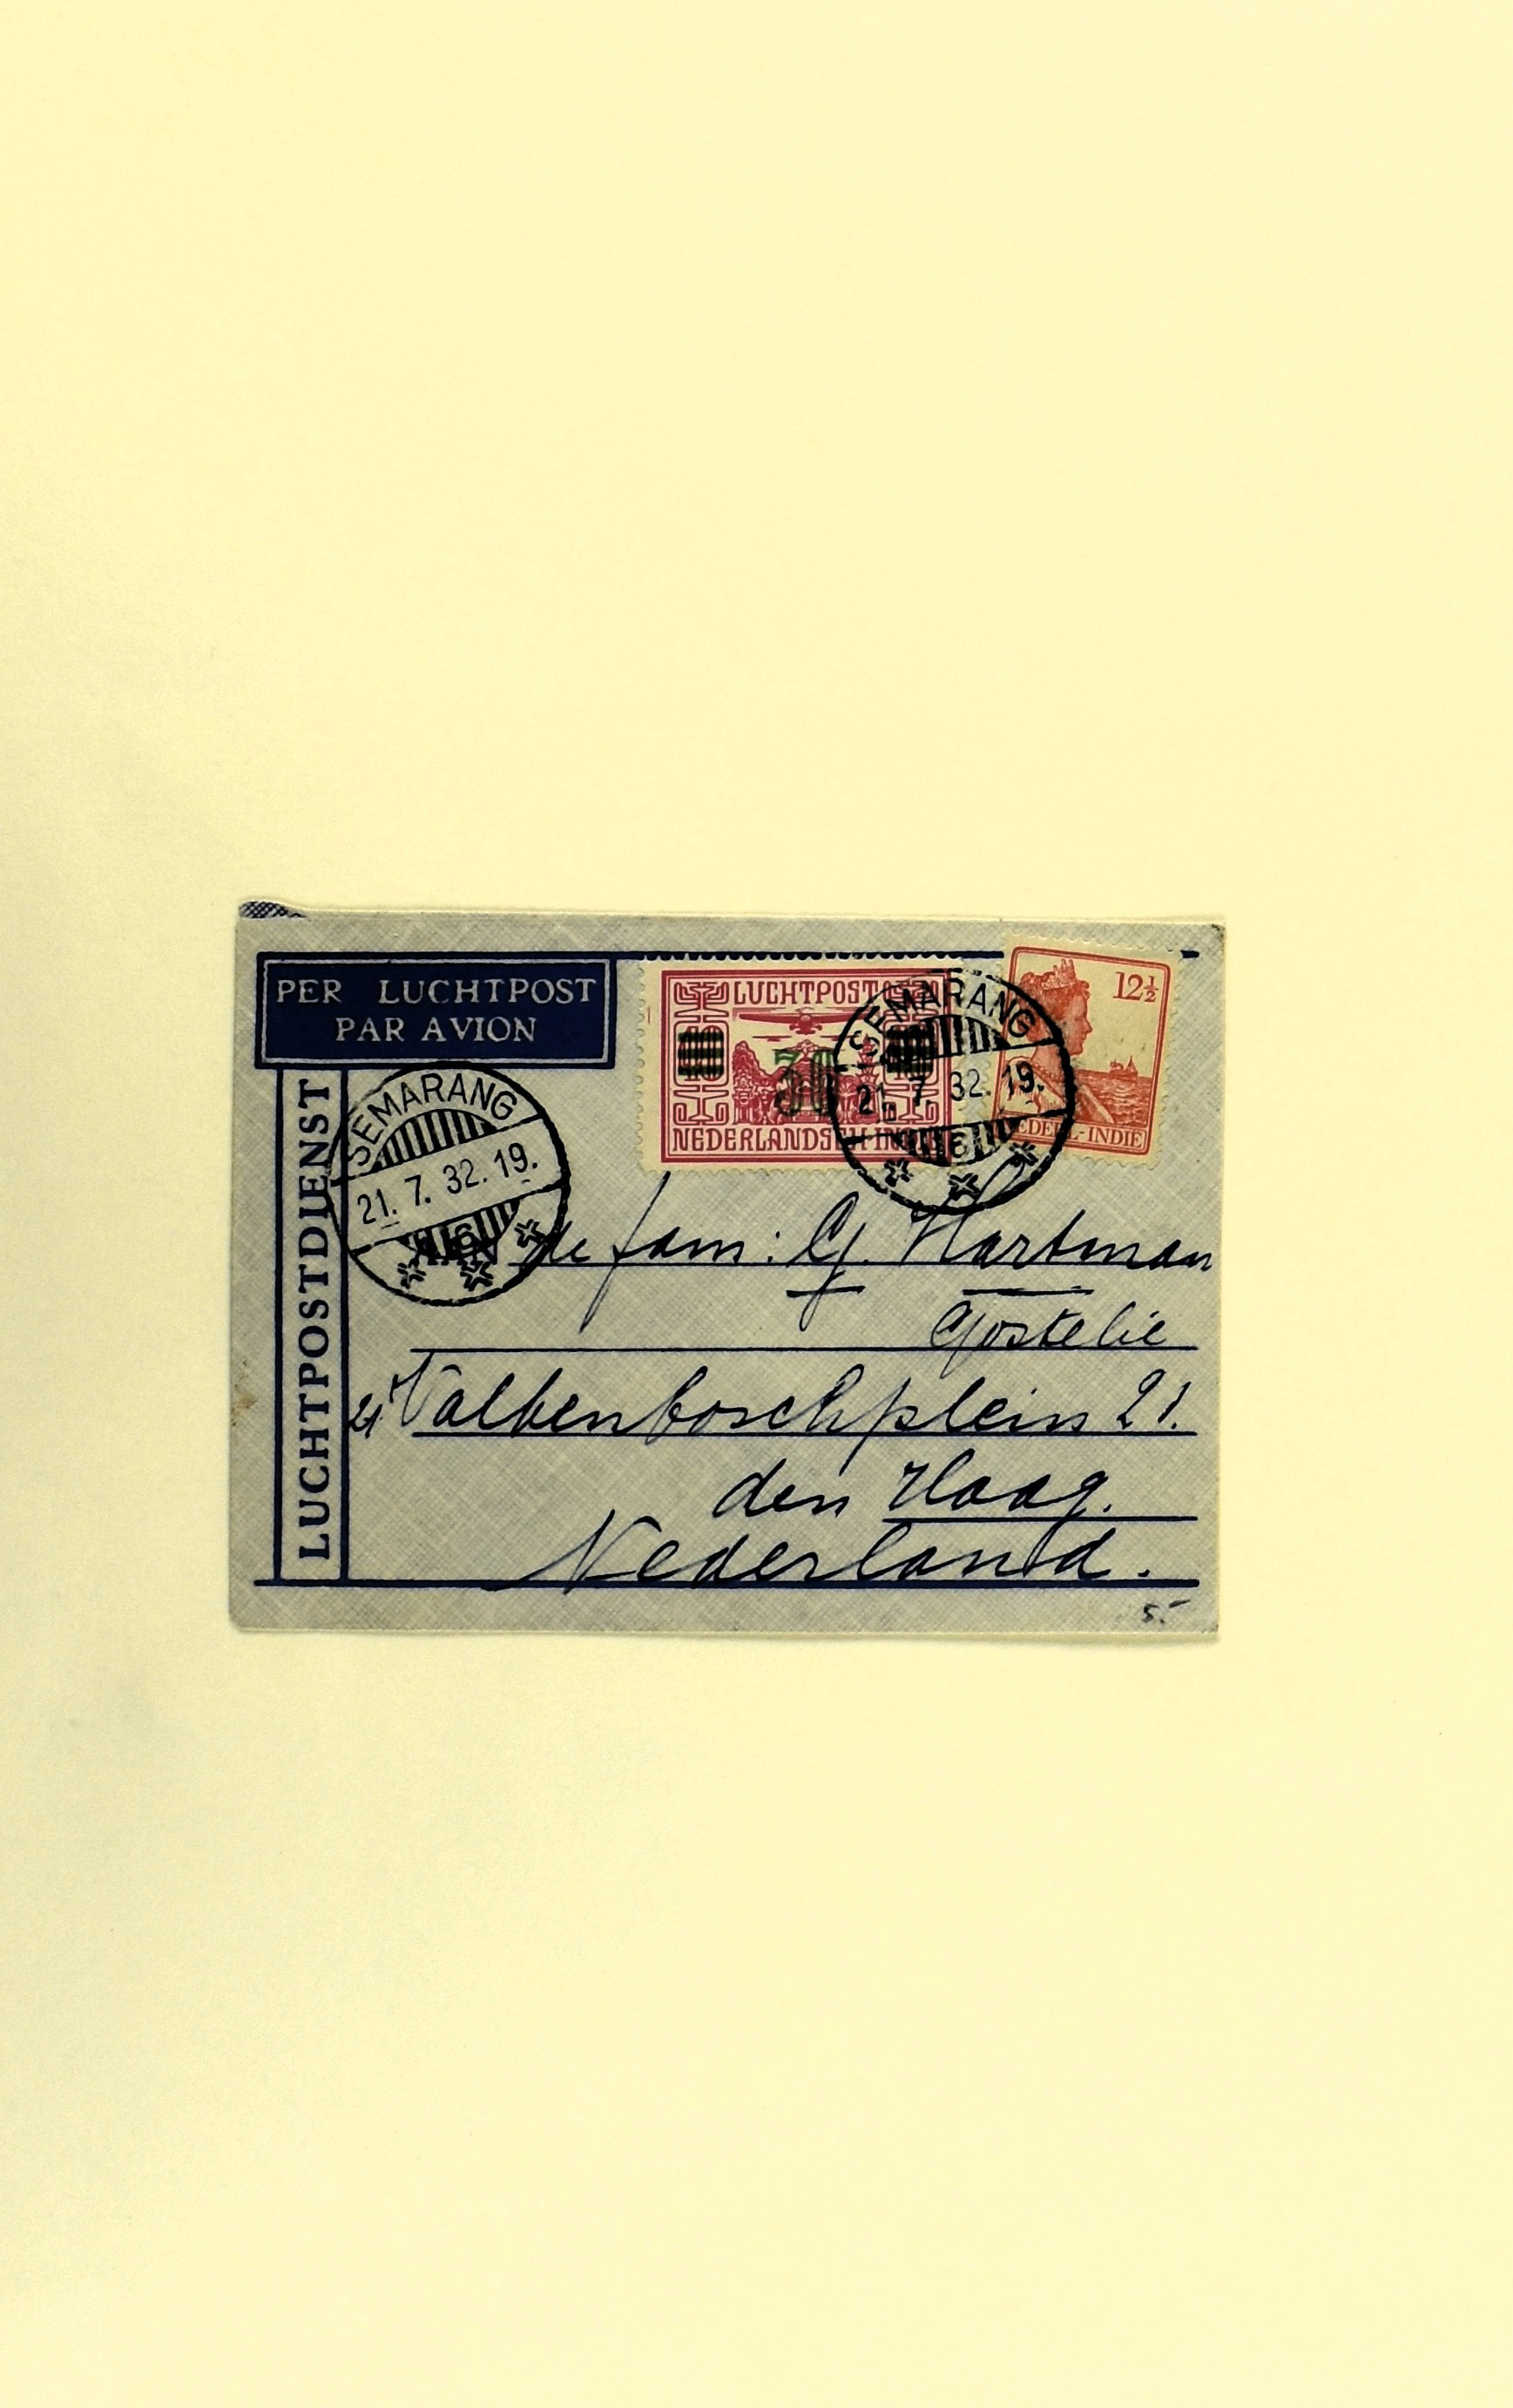 PER LUCHTPOST
PAR AVION
LUCHTPOSTDIENST
LUCHTPOST
40
30
NEDERLANDSCH INDIE
12½
NEDERL-INDIE
SEMARANG
21. 7. 32. 19.
6
SEMARANG
21. 7. 32. 19.
6
AAN de fam: G. Hartman
Gostelie
Valkenboschplein 21.
den Haag.
Nederland.
5.-